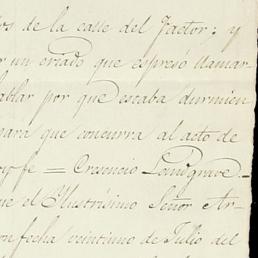 os de la calle del Factor; y
r un criado que espresó llamar
ablar por que estaba durmien
para que concurra al acto de
oy fe = Cresencio Landgrave
ue el Ilustrísimo Señor Ar-
on fecha veintiuno de Julio del